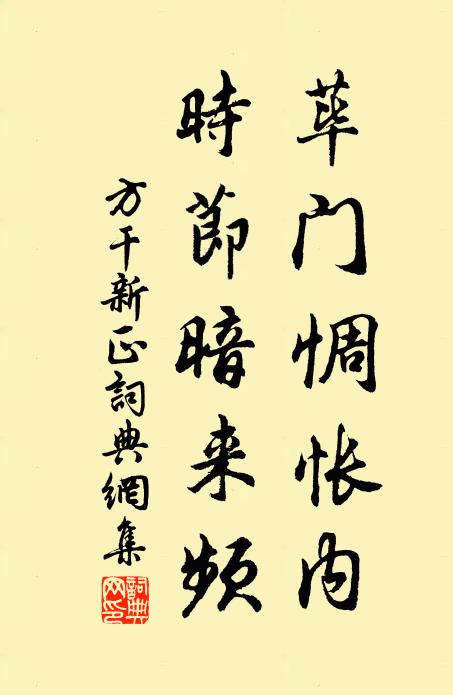 蓽门惆怅内
時節暗来频
方干新正詞典網集
詞典网印